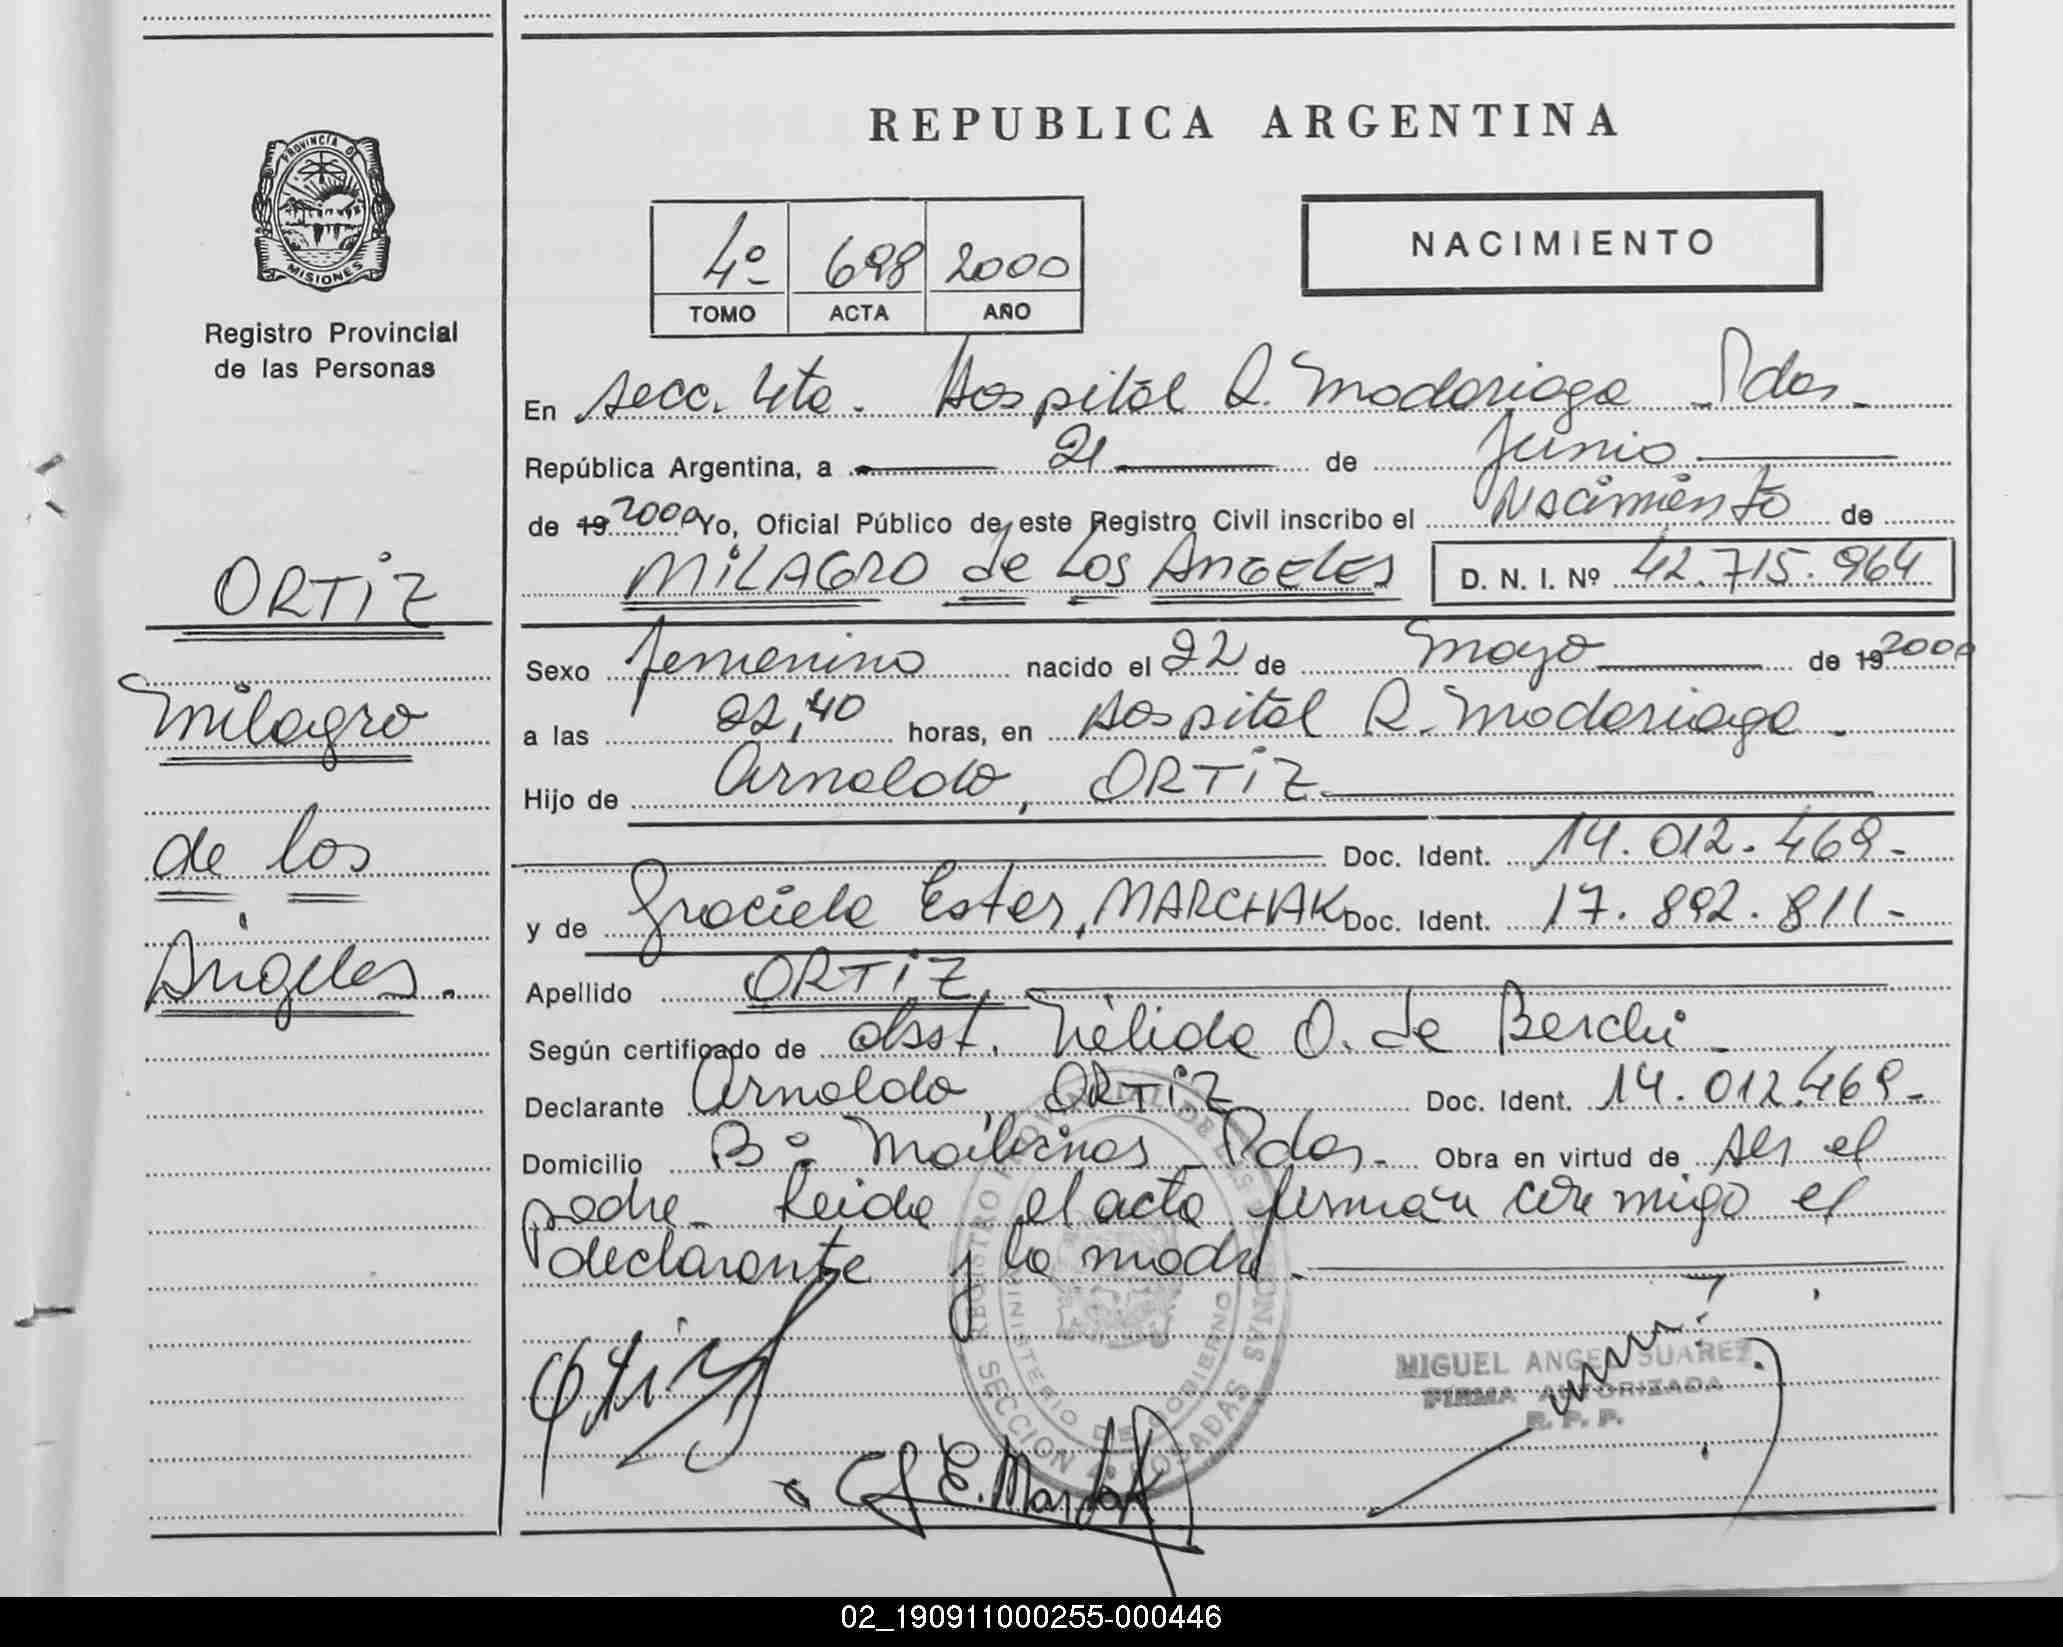 REPUBLICA ARGENTINA
PROVINCIA DE
MISIONES
Registro Provincial
de las Personas
4º 698 2000
TOMO ACTA AÑO
NACIMIENTO
En Secc. 4ta. Hospital R. Madariaga - Pdas -
República Argentina, a 21 de Junio
de 19 2000 Yo, Oficial Público de este Registro Civil inscribo el Nacimiento de
MILAGRO de Los ANGELES D. N. I. Nº 42.715.964
ORTIZ
Milagro
de los
Angeles.
Sexo femenino nacido el 22 de Mayo de 19 2000
a las 22,40 horas, en Hospital R. Madariaga -
Hijo de Arnaldo, ORTIZ
Doc. Ident. 14.012.469-
y de Graciela Ester, MARCHAK Doc. Ident. 17.892.811-
Apellido ORTIZ
Según certificado de obst. Nélida O. de Berchi -
Declarante Arnaldo, ORTIZ Doc. Ident. 14.012.469-
Domicilio Bº Pdas - Obra en virtud de ser el
padre - Leida el acta firman conmigo el
declarante y la madre -
REGISTRO PROVINCIAL DE LAS PERSONAS
MINISTERIO DE GOBIERNO
SECCION 4º POSADAS
Ortiz
E. Marchak
MIGUEL ANGEL SUAREZ
FIRMA AUTORIZADA
R. P. P.
02_190911000255-000446